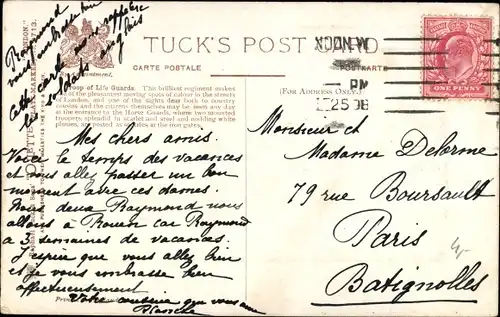 Raymond
vous embrasse bien
Cette carte me rappelle
les soldats
TUCK'S POST CARD
CARTE POSTALE
POSTKARTE
(FOR ADDRESS ONLY.)
PM
25 08
ONE PENNY
Troop of Life Guards. This brilliant regiment makes
of the pleasantest moving spots of colour in the streets
of London, and one of the sights dear both to country
cousin and the citizens themselves may be seen any day
at the entrance to the Horse Guards, where two mounted
troopers, splendid in scarlet and steel and nodding white
plumes, are posted as sentries at the iron gates.
Mes chers amis.
Voici le temps des vacances
et vous allez passer un bon
moment avec ces dames.
Nous deux Raymond nous
allons à Rouen car Raymond
a 3 semaines de vacances.
J'espère que vous allez bien
et je vous embrasse bien
affectueusement
Votre cousine que vous
Blanche
Monsieur et
Madame Delorme
79 rue Boursault
Paris
Batignolles